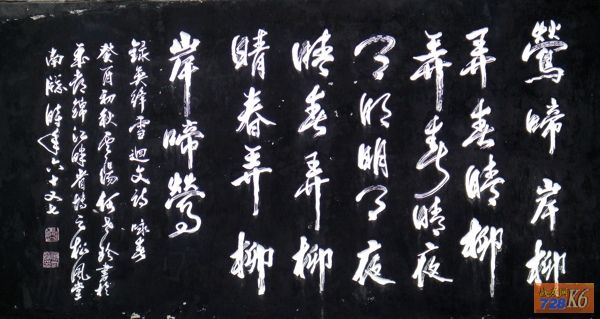 鶯啼岸柳
弄春晴柳
弄春晴夜
月明明月夜
晴春弄柳
晴春弄柳
岸啼鶯
錄吳絳雪迴文詩 詠春
癸酉初秋 書於
錦江畔 松風堂
南牕時年六十又七
战友网
728K6